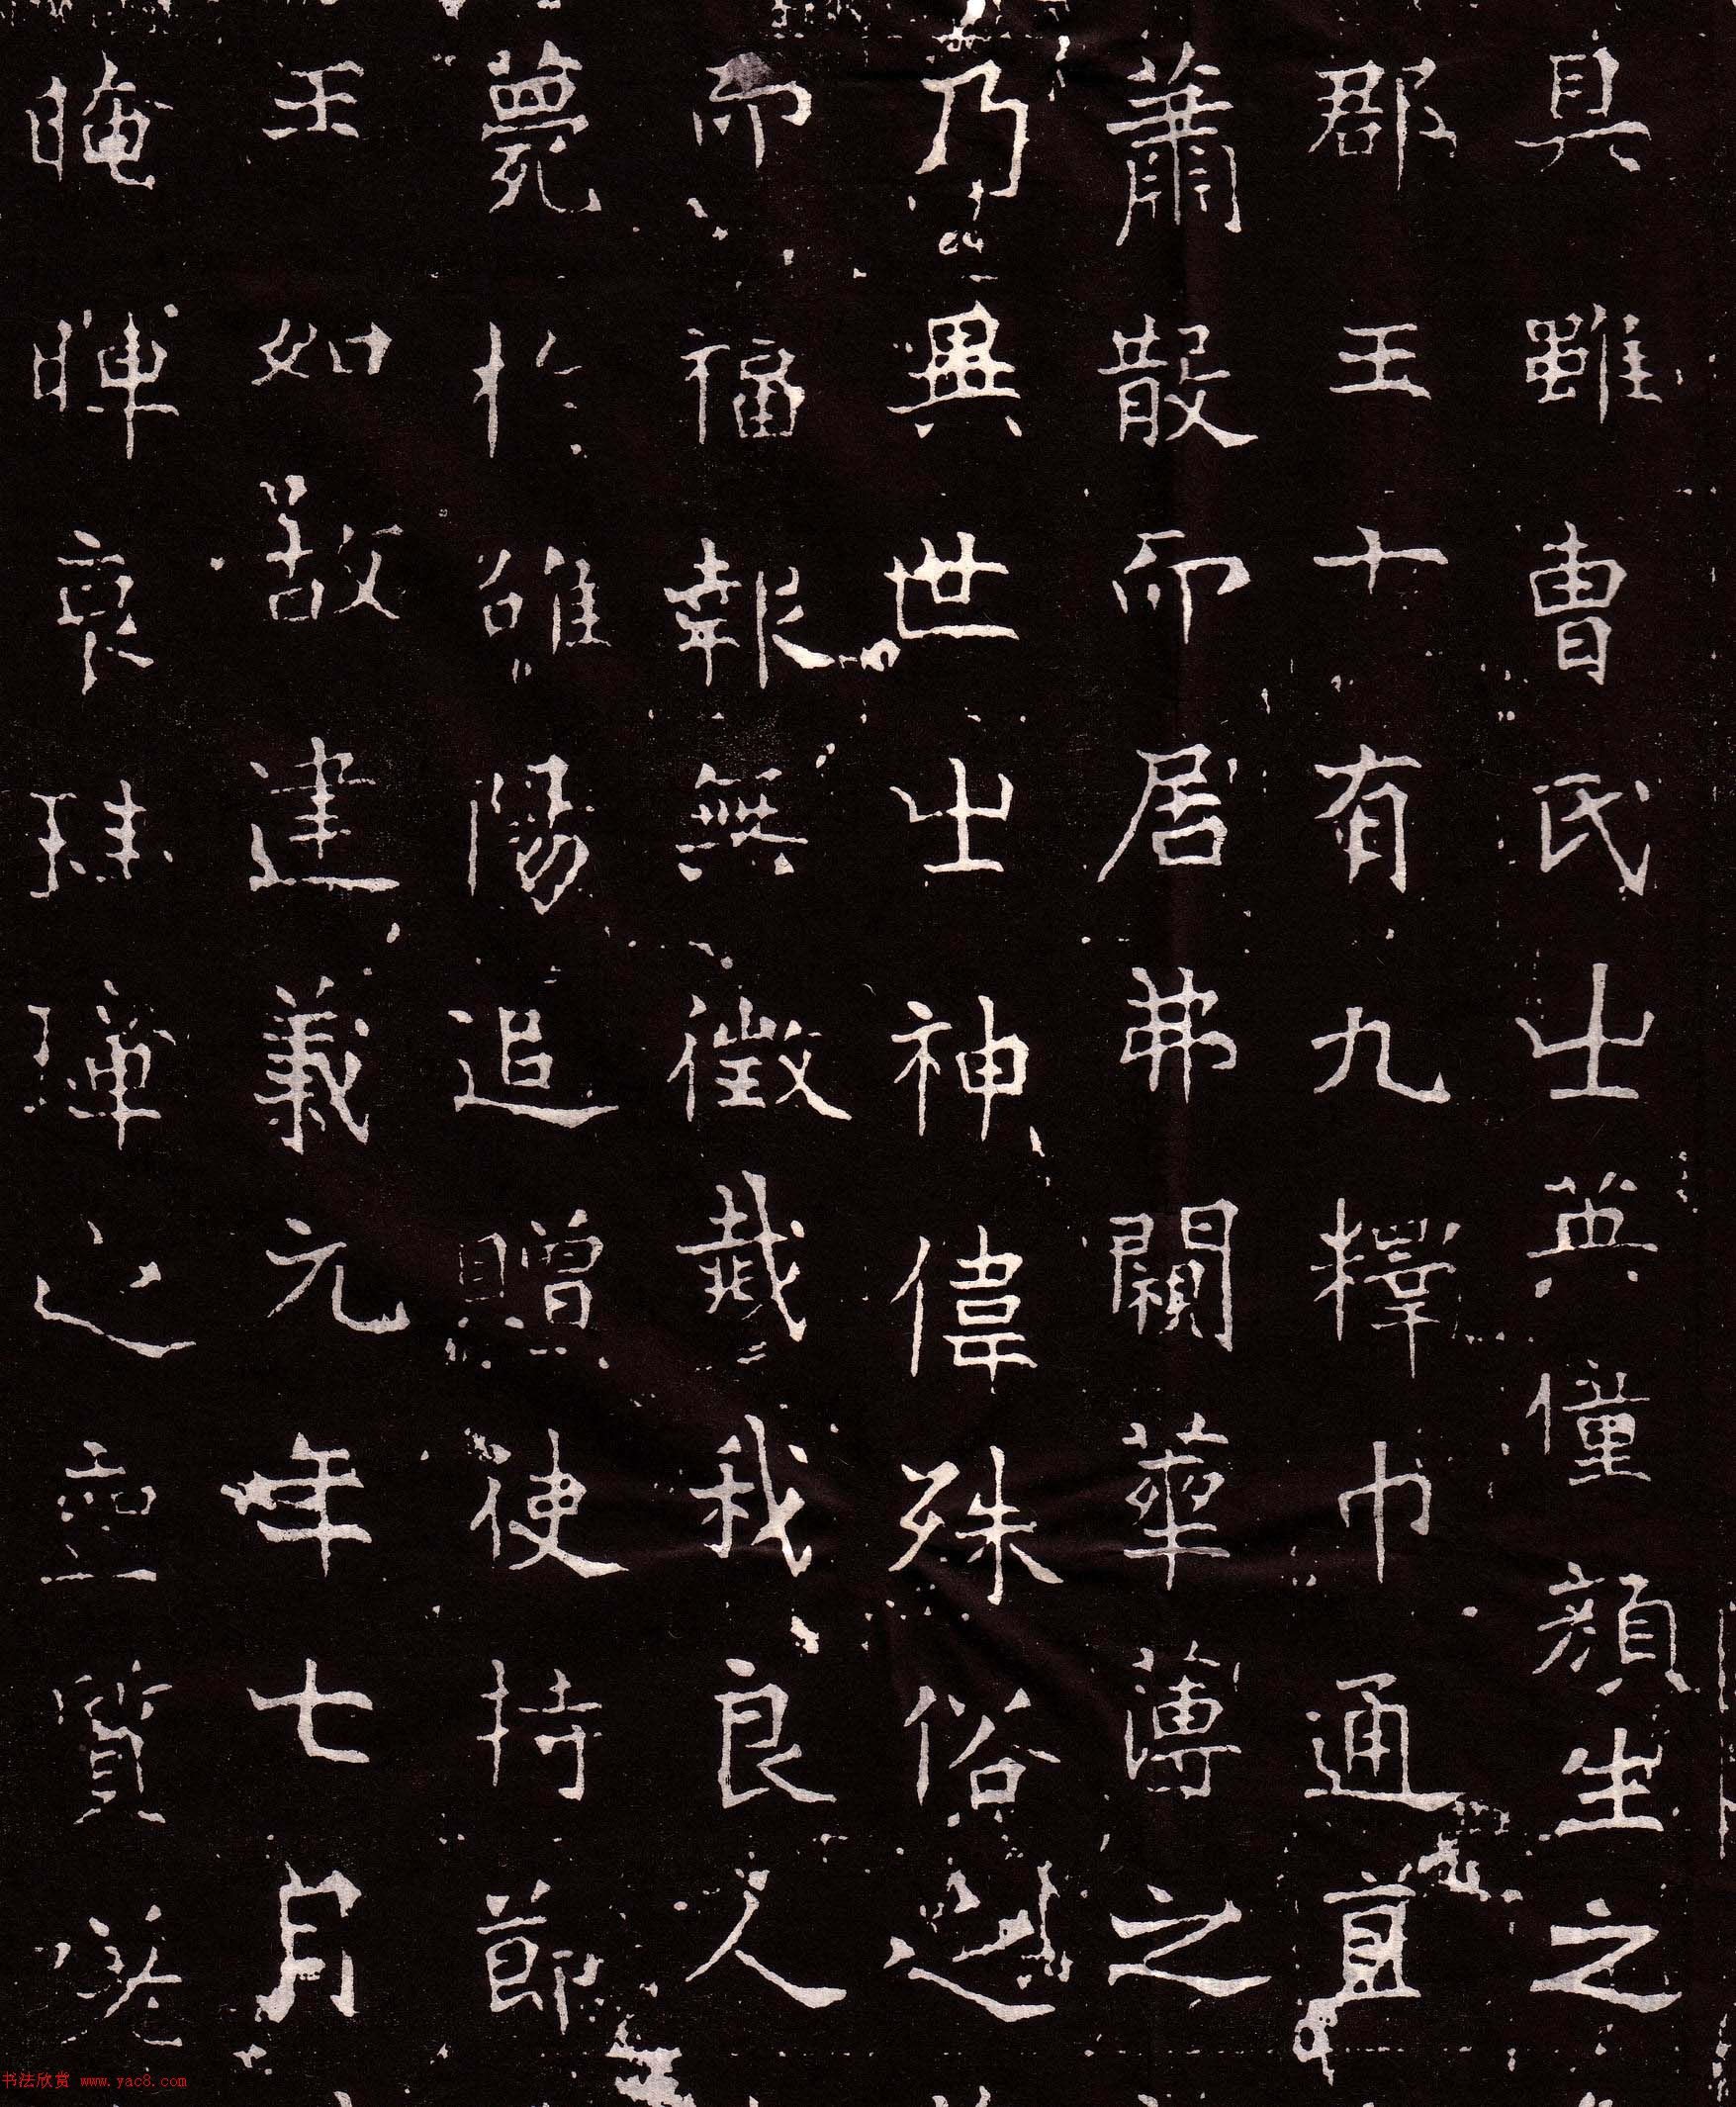 具雖曹氏㞢英僮顏生之
郡王十有九釋巾通直
蕭散而居弗闚華薄之
乃異世㞢神偉殊俗
而福報無徵殲我良人
薨於雒陽追贈使持節
王如故建義元年七月
晦暉哀珪璋之空質
书法欣赏 www.yac8.com